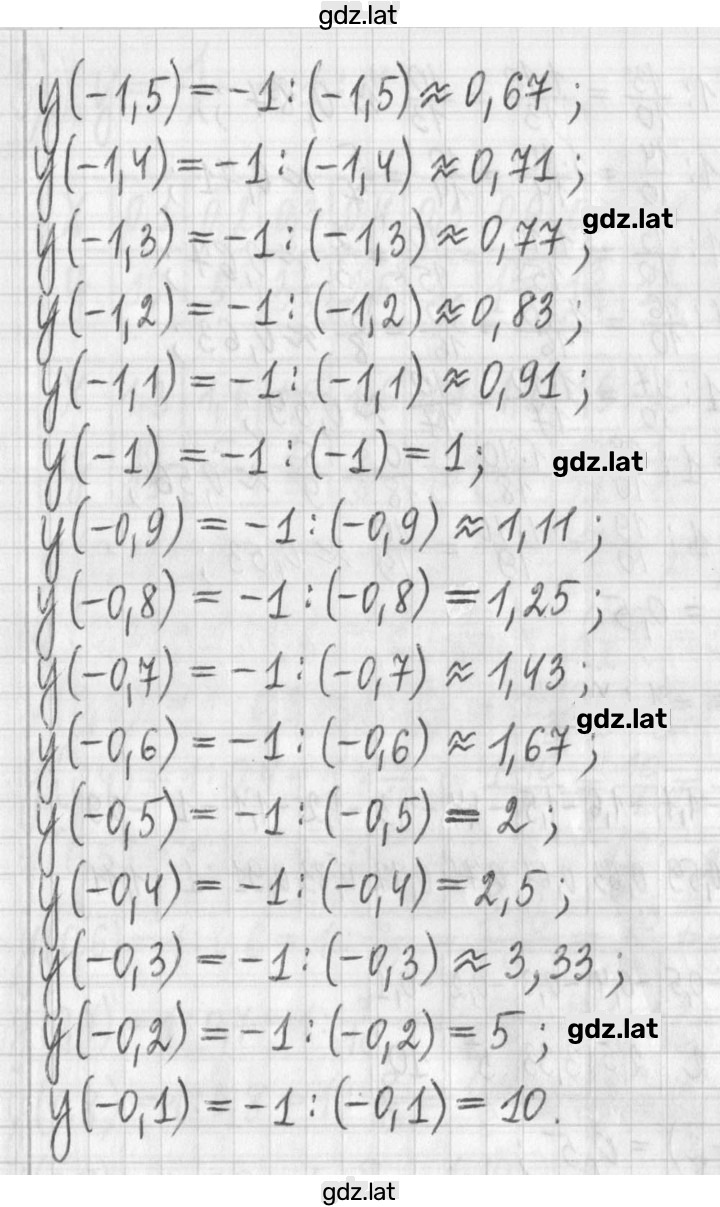 gdz.lat
y(-1,5) = -1 : (-1,5) ≈ 0,67 ;
y(-1,4) = -1 : (-1,4) ≈ 0,71 ;
y(-1,3) = -1 : (-1,3) ≈ 0,77 ; gdz.lat
y(-1,2) = -1 : (-1,2) ≈ 0,83 ;
y(-1,1) = -1 : (-1,1) ≈ 0,91 ;
y(-1) = -1 : (-1) = 1; gdz.lat
y(-0,9) = -1 : (-0,9) ≈ 1,11 ;
y(-0,8) = -1 : (-0,8) = 1,25 ;
y(-0,7) = -1 : (-0,7) ≈ 1,43 ;
y(-0,6) = -1 : (-0,6) ≈ 1,67 ; gdz.lat
y(-0,5) = -1 : (-0,5) = 2 ;
y(-0,4) = -1 : (-0,4) = 2,5 ;
y(-0,3) = -1 : (-0,3) ≈ 3,33 ;
y(-0,2) = -1 : (-0,2) = 5 ; gdz.lat
y(-0,1) = -1 : (-0,1) = 10.
gdz.lat